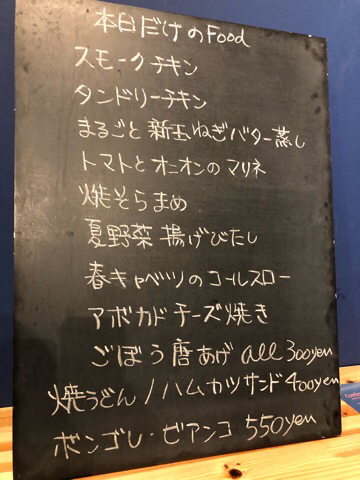 本日だけのFood
スモークチキン
タンドリーチキン
まるごと新玉ねぎバター蒸し
トマトとオニオンのマリネ
焼そらまめ
夏野菜揚げびたし
春キャベツのコールスロー
アボカドチーズ焼き
ごぼう唐あげ all 300yen
焼うどん/ハムカツサンド400yen
ボンゴレ・ビアンコ 550yen